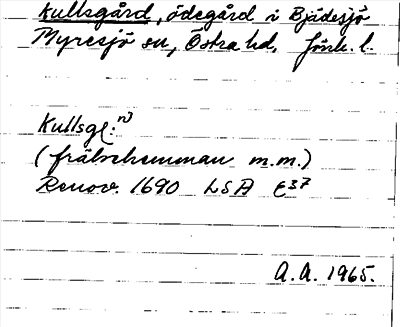 Kullsgård, ödegård i Bjädesjö
Myresjö sn, Östra hd, Jönk. l.
Kullsgl:n)
(frälsehemman m.m.)
Renov. 1690 LSA E37
A.A. 1965.